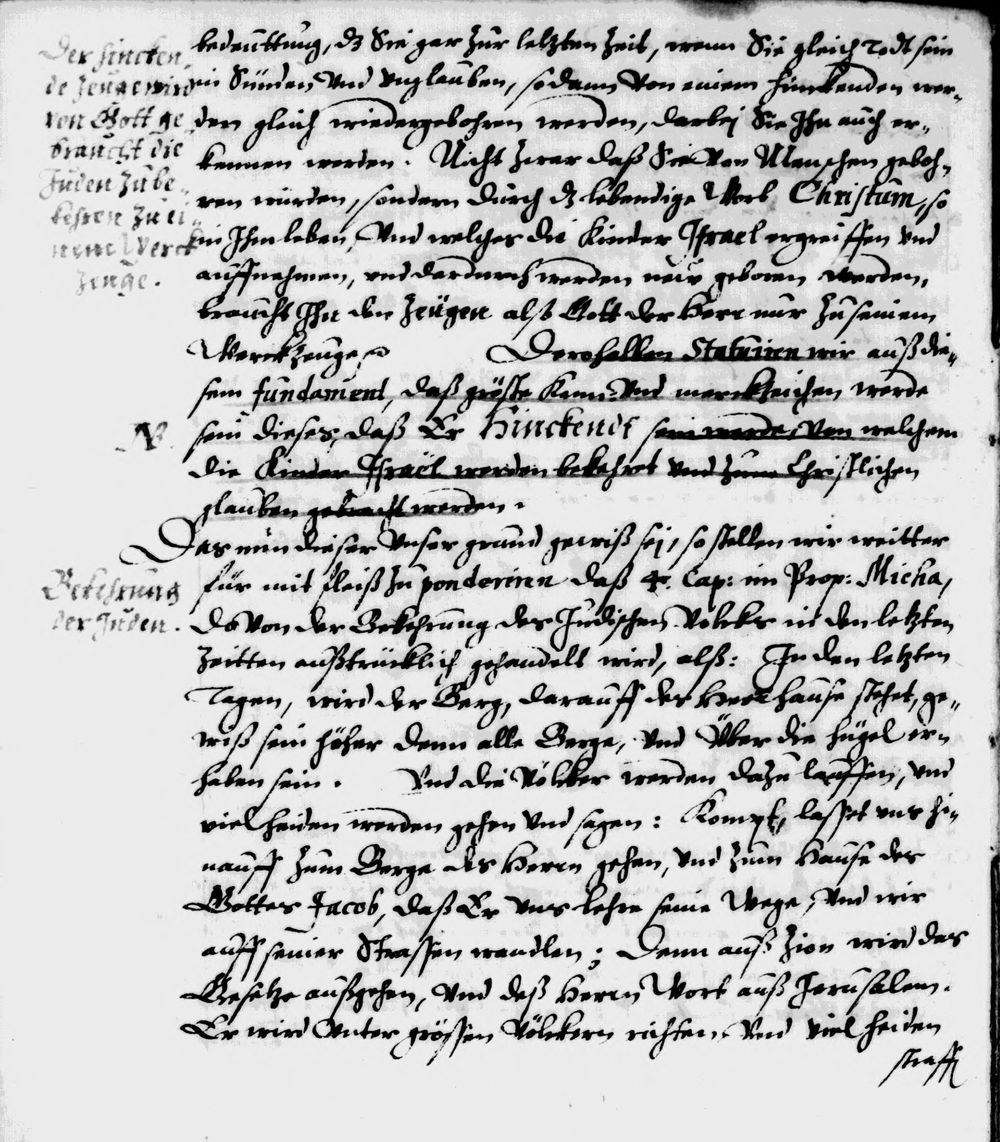 Der hincken-
de Zeuge wird
von Gott ge
braucht die
Juden zu be-
kehren zu ei
nem Werck
zeuge.
bedeuttung, dz Sie gar zur letzten Zeit, wenn Sie gleich Todt sein
in Sünden Vnd vnglauben, sodann Von einem hinckenden wer-
den gleich wiedergebohren werden, darbej Sie Ihn auch er-
kennen werden. Nicht zwar daß Sie Von Menschen geboh-
ren würden, sondern durch dz lebendige Wort Christum, so
in Ihm leben, Vnd welches die Kinder Israel ergreiffen vnd
auffnehmen, vnd dardurch werden new geboren werden,
braucht Ihn den Zeügen alß Gott der Herr nur zu seinem
Werckzeuge. Derohalben Statuiren wir auß die-
sem fundament, daß gröste Kenn- Vnd merckzeichen werde
NB.
sein dieses, daß Er Hinckendt sein werde, Von welchem
die Kinder Israël werden bekehret vnd zum Christlichen
glauben gebracht werden.
Das nun dieser Vnser grund gewiß sej, so stellen wir weitter
Bekehrung
der Juden.
für mit fleiß zu ponderiren daß 4. Cap: im Prop: Micha,
da Von der Bekehrung des Jüdischen Volcks in den letzten
Zeitten außtrücklich gehandelt wird, alß: In den letzten
Tagen, wird der Berg, darauff des Herrn hause stehet, ge-
wiß sein höher denn alle Berge, Vnd Über die hügel er-
haben sein. Vnd die Völcker werden dazu lauffen, vnd
viel heiden werden gehen Vnd sagen: Kompt, lasset vns hi-
nauff zum Berge des Herrn gehen, vnd zum Hause des
Gottes Jacob, daß Er vns lehre seine Wege, Vnd wir
auff seiner Strassen wandlen; Denn auß Zion wird das
Gesetze außgehen, Vnd deß Herrn Wort auß Jerusalem.
Er wird Vnter grössen Völckern richten, Vnd viel heiden
straff